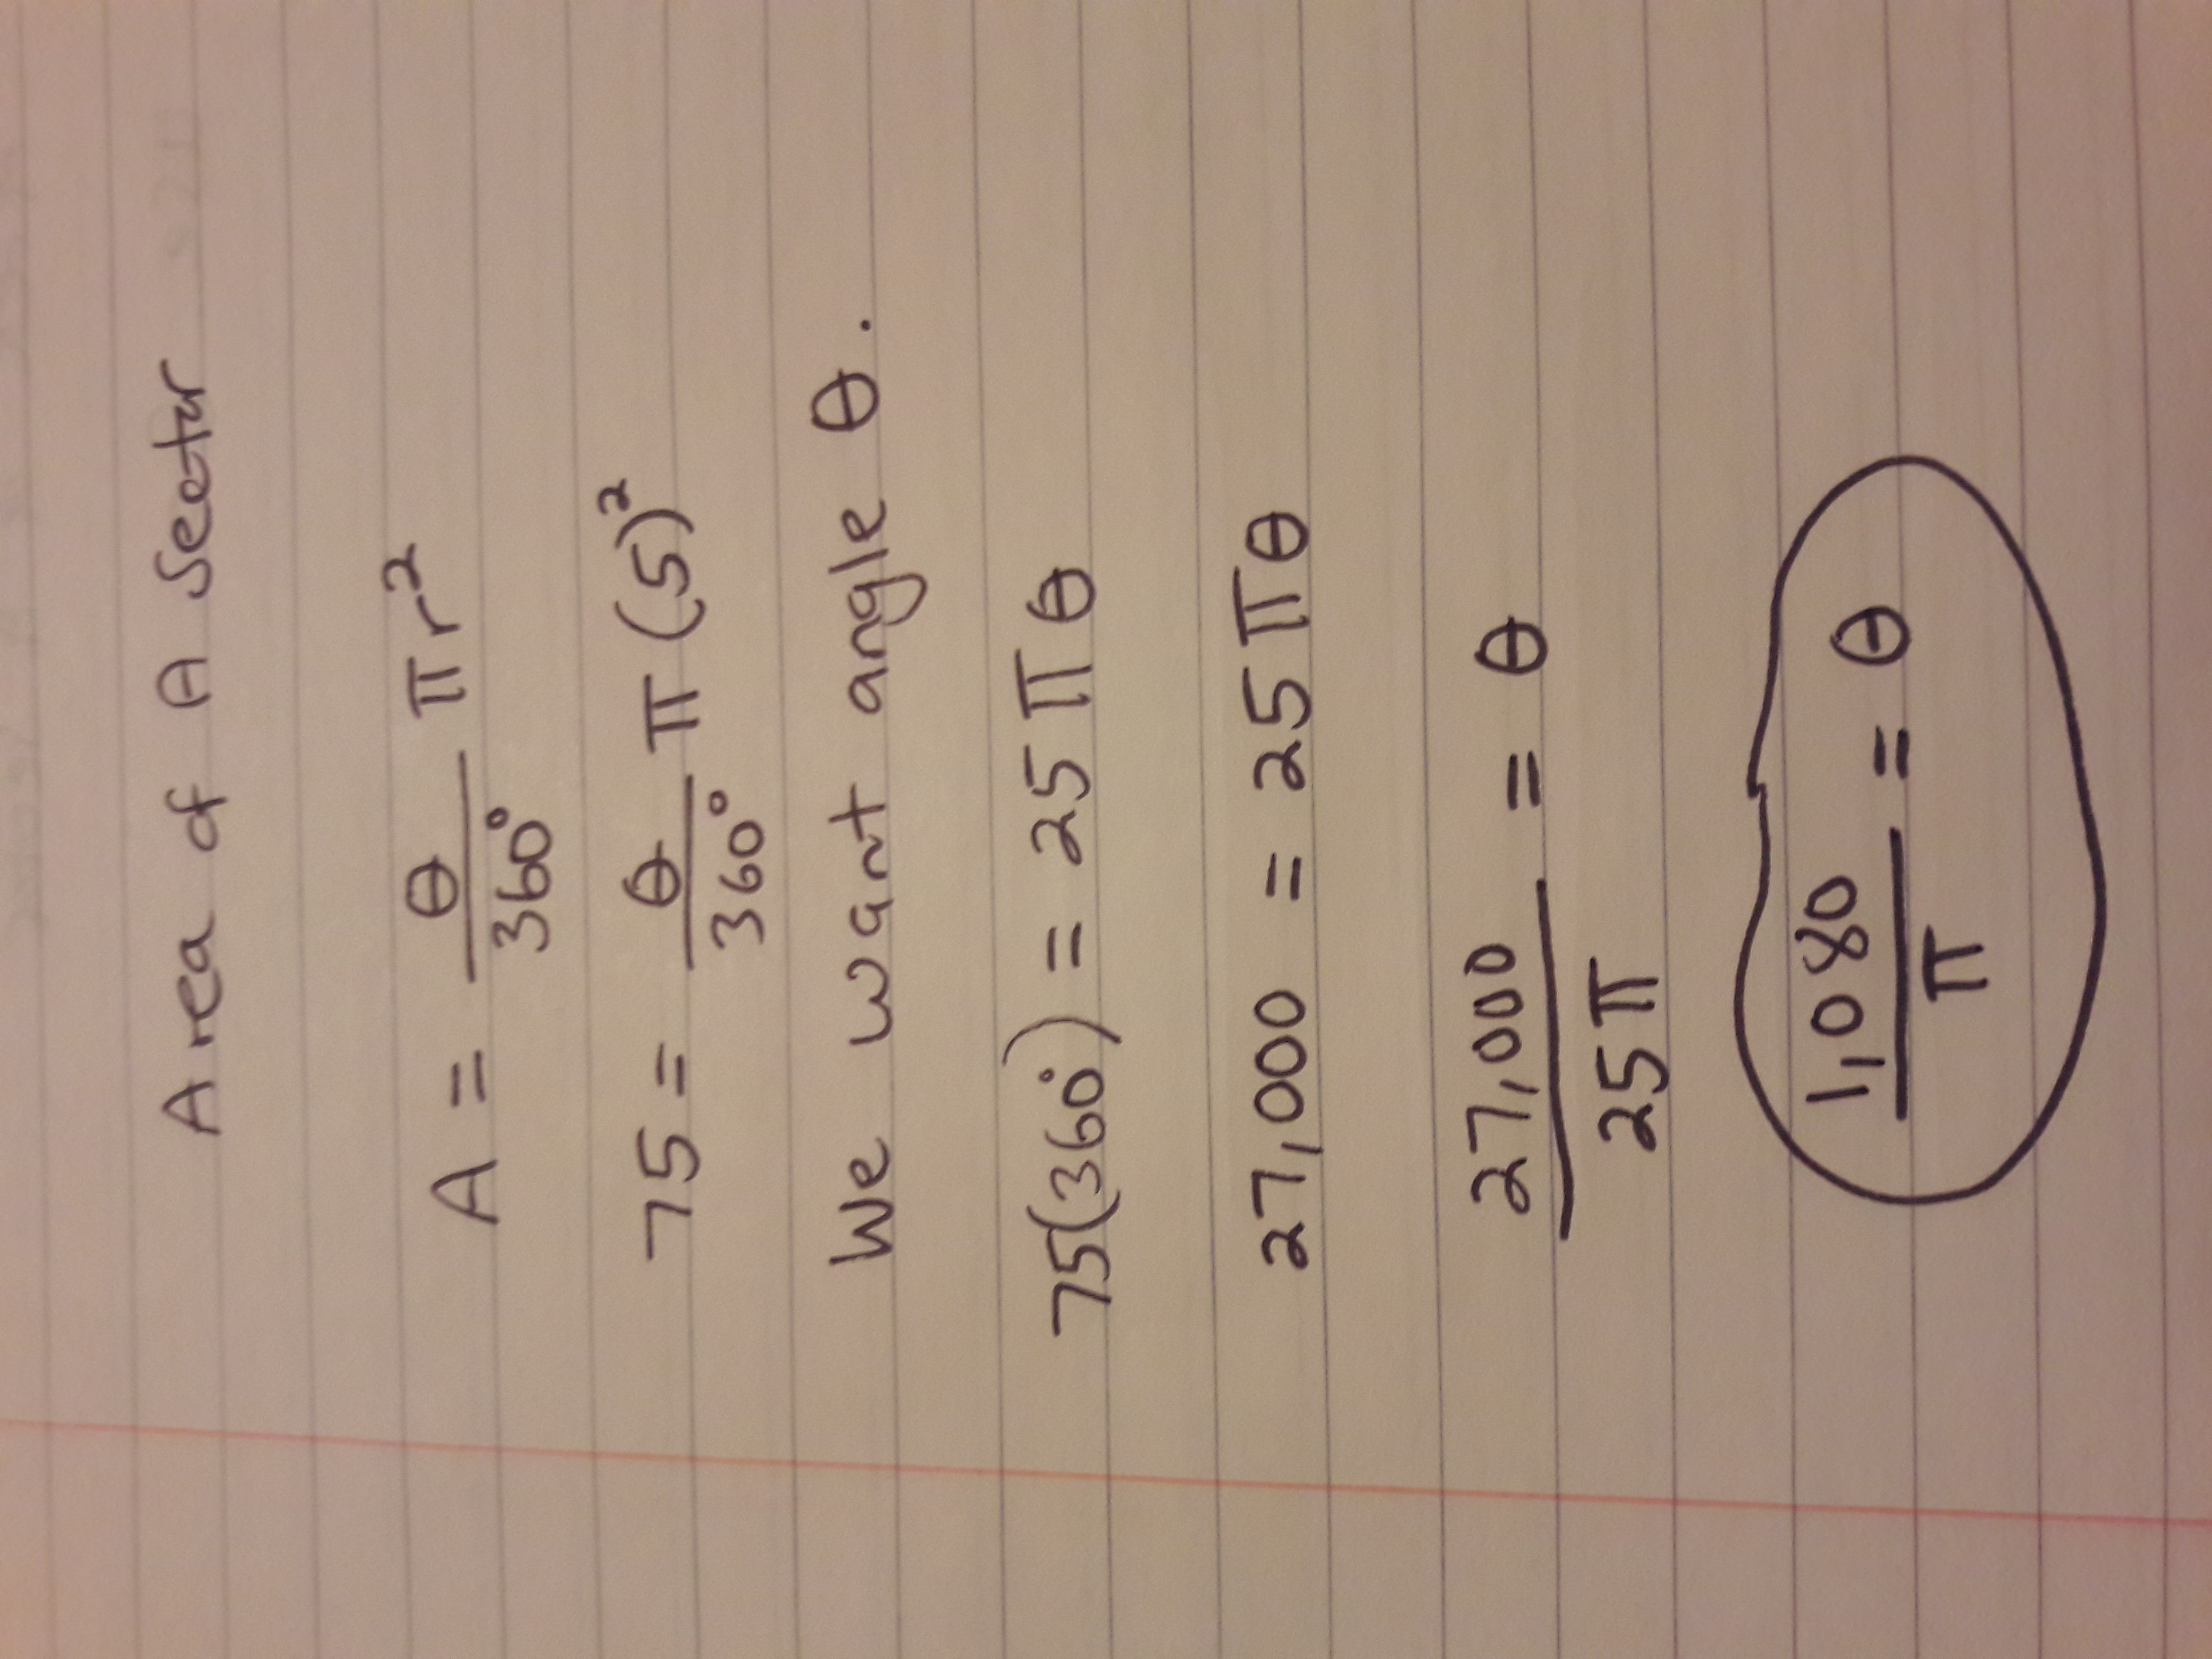 Area of A Sector
A = θ/360° πr²
75 = θ/360° π(5)²
We want angle θ.
75(360°) = 25πθ
27,000 = 25πθ
27,000/25π = θ
1,080/π = θ